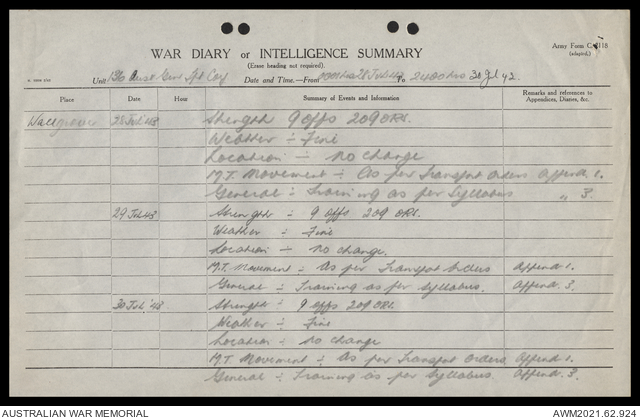 WAR DIARY or INTELLIGENCE SUMMARY
(Erase heading not required).
Army Form C.2118
(adapted.)
Unit 136 Aust Gen Tpt Coy Date and Time.—From To 2400hrs 30 Jul 42.
Place Date Hour Summary of Events and Information Remarks and references to Appendices, Diaries, &c.
Wallgrove 28 Jul '43 Strength 9 offs 209 ORs.
Weather ÷ Fine
Location ÷ no change
M.T. Movement ÷ As per Transport orders Append 1.
General ÷ Training as per Syllabus " 3.
29 Jul 43 Strength ÷ 9 offs 209 ORs.
Weather ÷ Fine
Location ÷ no change.
M.T. Movement ÷ As per Transport orders Append 1.
General ÷ Training as per Syllabus. Append. 3.
30 Jul '43 Strength ÷ 9 offs 209 ORs
Weather ÷ Fine
Location ÷ no change
M.T. Movement ÷ As per Transport orders Append 1.
General ÷ Training as per Syllabus Append. 3.
AUSTRALIAN WAR MEMORIAL AWM2021.62.924